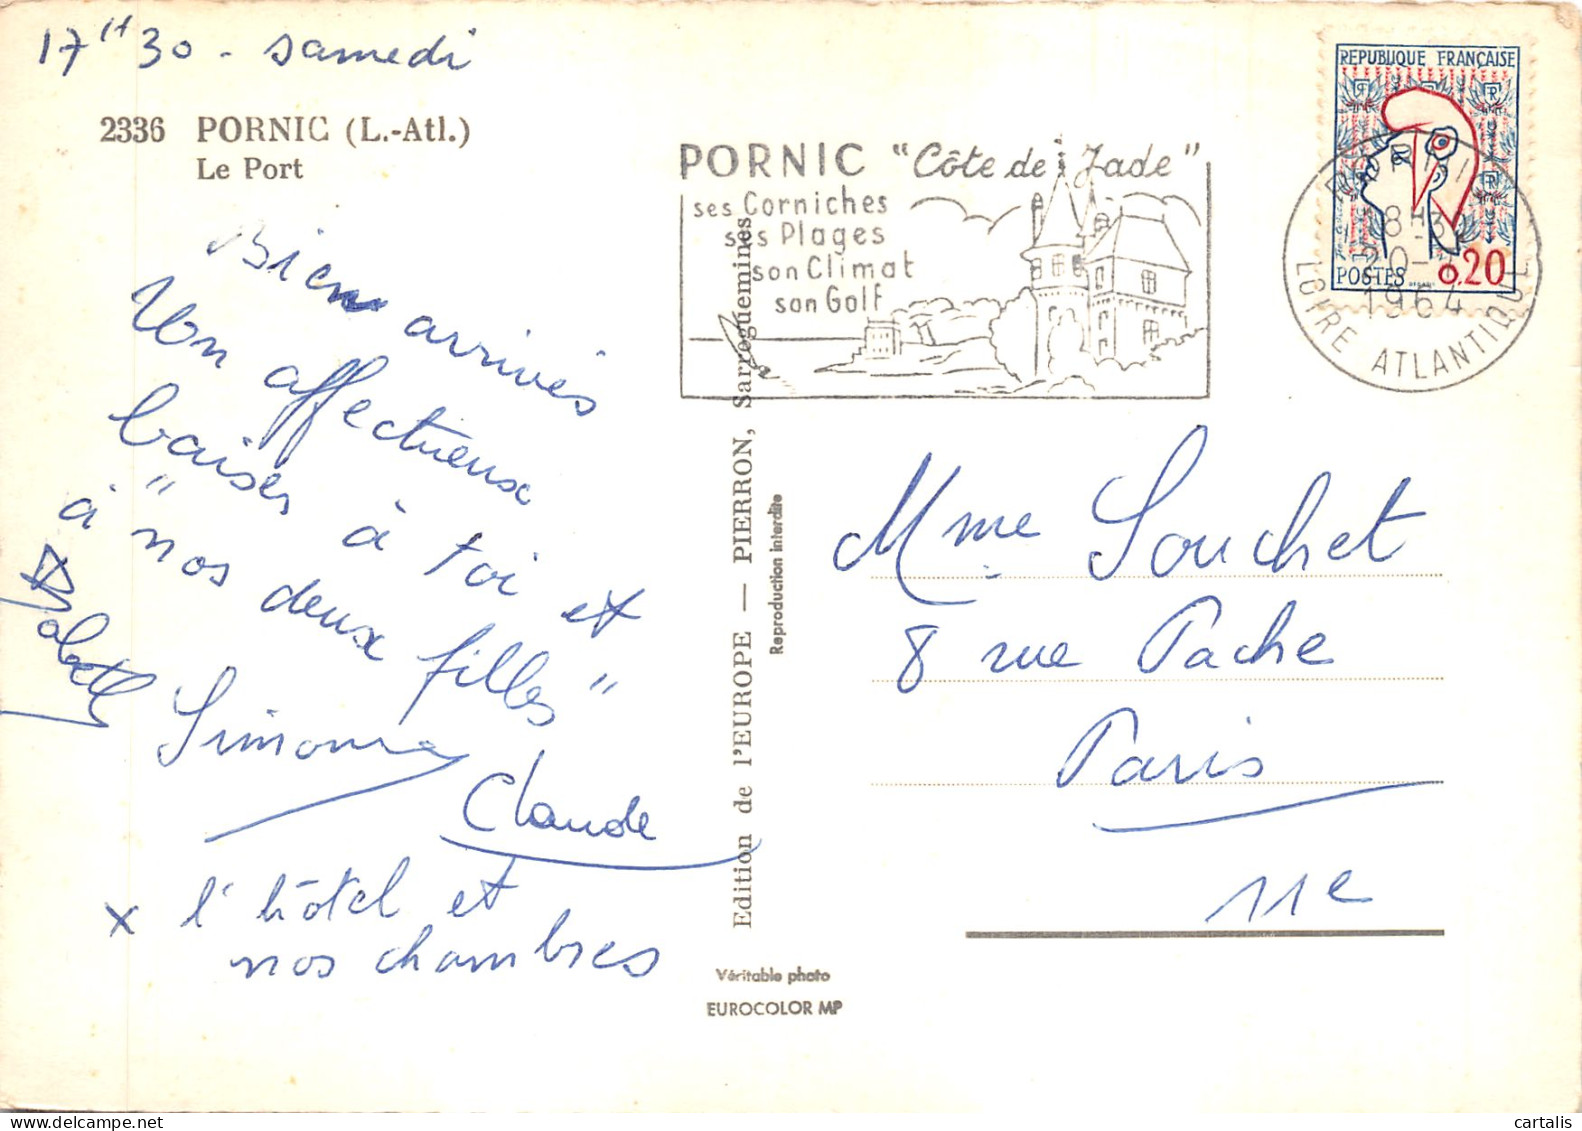 17H30 - Samedi
2336 PORNIC (L.-Atl.)
Le Port
Bien arrivés
Mon affectueux
baiser à toi et
à "nos deux filles"
Babeth
Simone
Claude
x l'hôtel et
nos chambres
PORNIC "Côte de Jade"
ses Corniches
ses Plages
son Climat
son Golf
Edition de l'EUROPE — PIERRON, Sarreguemines
Reproduction interdite
Véritable photo
EUROCOLOR MP
REPUBLIQUE FRANÇAISE
POSTES 0,20
PORNIC
18H30
20-
1964
LOIRE ATLANTIQUE
Mme Souchet
8 rue Pache
Paris
11e
cartalis